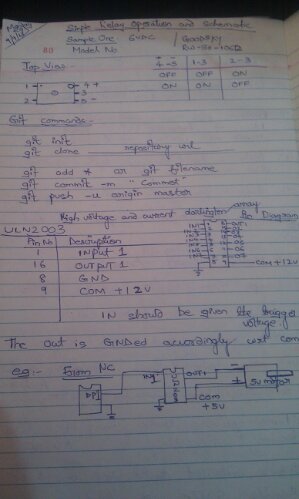 Simple Relay Operation and Schematic
Sample One 6VDC GOODSKY
80 Model No
Top View 4-5 1-3 2-3
OFF OFF ON
ON ON OFF
1 4 +
3
2 5 -
Git commands -
git init
git clone repository url
git add * or git filename
git commit -m "Commet"
git push -u origin master
High voltage and current darlington array
ULN2003 Pin Diagram
Pin No Description
1 INPUT 1
16 OUTPUT 1
8 GND
9 COM +12V
COM +12V
IN should be given the trigger
voltage.
The out is GNDed accordingly wrt com
eg:- From NC
IN1 OUT1
COM
+5V
5V motor